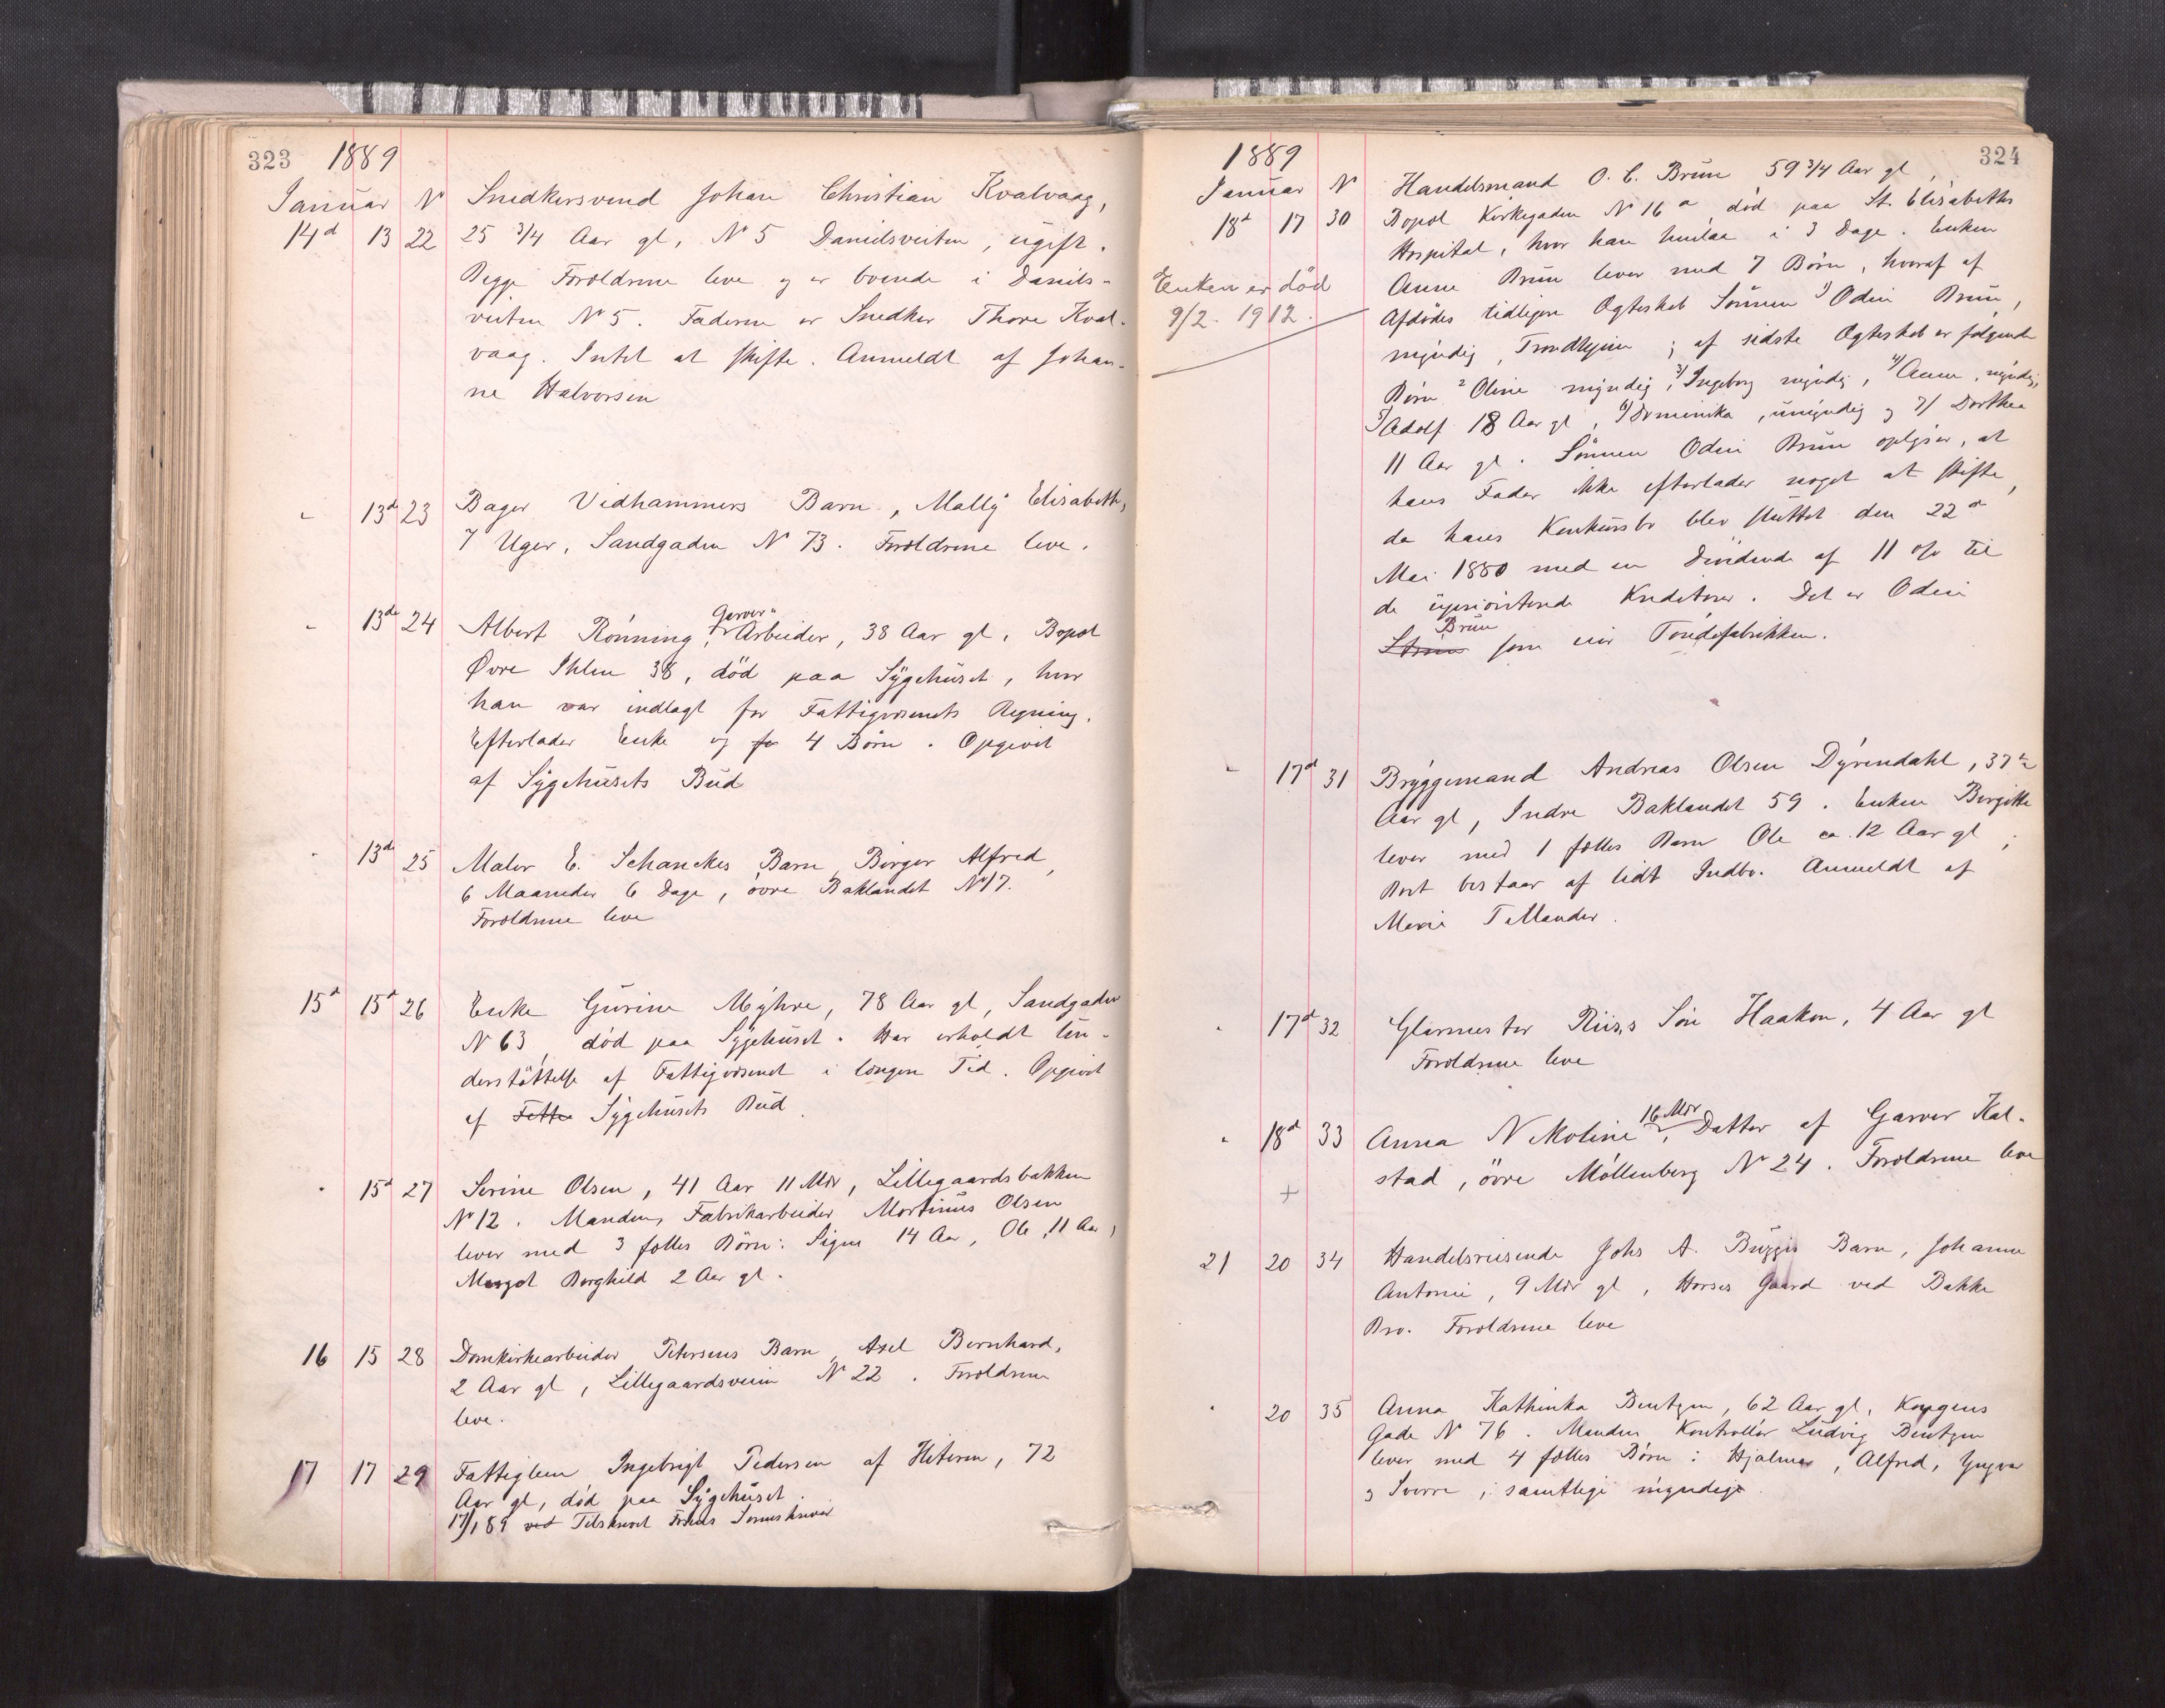 323 1889
Januar N Snedkersvend Johan Christian Kvalvaag,
14d 13 22 25 3/4 Aar gl, N 5 Danielsveiten, ugift.
Begge Forældrene leve og er boende i Daniels-
veiten N 5. Faderen er Snedker Thore Kval-
vaag. Intet at skifte. Anmeldt af Johan-
ne Halvorsen
" 13de 23 Bager Vidhammers Barn, Mally Elisabeth,
7 Uger, Sandgaden N 73. Forældrene leve.
" 13de 24 Albert Rönning, Garver-Arbeider, 38 Aar gl, Bopæl
Øvre Ihlen 38, död paa Sygehuset, hvor
han var indlagt for Fattigvæsenets Regning.
Efterlader Enke og 4 Börn. Opgivet
af Sygehusets Bud
" 13de 25 Maler E. Schanckes Barn, Birger Alfred,
6 Maaneder 6 Dage, övre Baklandet N 17.
Forældrene leve
15d 15d 26 Enke Gurine Myhre, 78 Aar gl, Sandgaden
N 63, död paa Sygehuset. Har erholdt Un-
derstöttelse af Fattigvæsenet i længere Tid. Opgivet
af Sygehusets Bud.
" 15d 27 Serine Olsen, 41 Aar 11 Mdr, Lillegaardsbakken
N 12. Manden, Fabrikarbeider Martinus Olsen
lever med 3 fælles Börn: Signe 14 Aar, Ole 11 Aar,
Margot Borghild 2 Aar gl.
16 15 28 Domkirkearbeider Petersens Barn Axel Bernhard,
2 Aar gl, Lillegaardsveien N 22. Forældrene
leve.
17 17 29 Fattiglem Ingebrigt Pedersen af Hiteren, 72
Aar gl, död paa Sygehuset.
17/1 89 ved Tilskrevet Fosens Sorenskriver
1889 324
Januar N Handelsmand O. C. Brun 59 3/4 Aar gl,
18d 17 30 Bopæl Kirkegaden N 16 a, död paa St. Elisabeths
Hospital, hvor han henlaa i 3 Dage. Enken
Enken er död Anne Brun lever med 7 Börn, hvoraf af
9/2. 1912. Afdödes tidligere Ægteskab Sönnen 1) Odin Brun,
myndig, Trondhjem; af sidste Ægteskab er fölgende
Börn 2 Oline myndig, 3) Ingeborg myndig, 4) Anna, myndig,
5) Adolf 18 Aar gl, 6) Dominika, umyndig og 7) Dorthea
11 Aar gl. Sönnen Odin Brun oplyser, at
hans Fader ikke efterlader noget at skifte,
da hans Konkursbo blev sluttet den 22de
Mai 1880 med en Dividende af 11 o/o til
de uprioriterede Kreditorer. Det er Odin
Brun som eier Tøndefabrikken.
" 17d 31 Bryggemand Andreas Olsen Dyrendahl, 37 1/2
Aar gl, Indre Baklandet 59. Enken Bergitte
lever med 1 fælles Barn Ole ca. 12 Aar gl;
Boet bestaar af lidt Indbo. Anmeldt af
Marie Tellander.
" 17d 32 Glarmester Riis's Sön Haakon, 4 Aar gl
Forældrene leve
" 18d 33 Anna Nikoline 16 Mdr, Datter af Garver Kal-
stad, övre Möllenberg N 24. Forældrene leve
+
21 20 34 Handelsreisende Johs A. Bugges Barn, Johanne
Antonie, 9 Mdr gl, Horses Gaard ved Bakke
Bro. Forældrene leve
" 20 35 Anna Kathinka Bentzen, 62 Aar gl, Kongens
Gade N 76. Manden Kontrollör Ludvig Bentzen
lever med 4 fælles Börn: Hjalmar, Alfred, Yngvar
og Sverre, samtlige myndige.